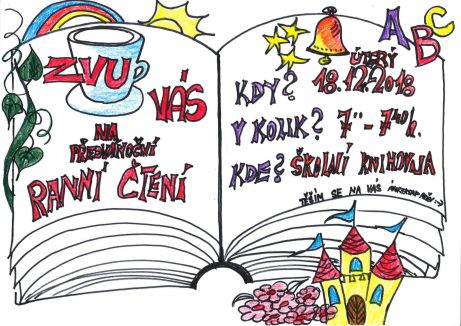 ZVU
VÁS
NA
PŘEDVÁNOČNÍ
RANNÍ ČTENÍ
ABC
KDY? ÚTERÝ
18.12.2018
V KOLIK? 7¹⁵ - 7⁴⁰ h.
KDE? ŠKOLNÍ KNIHOVNA
TĚŠÍM SE NA VÁS
:-)